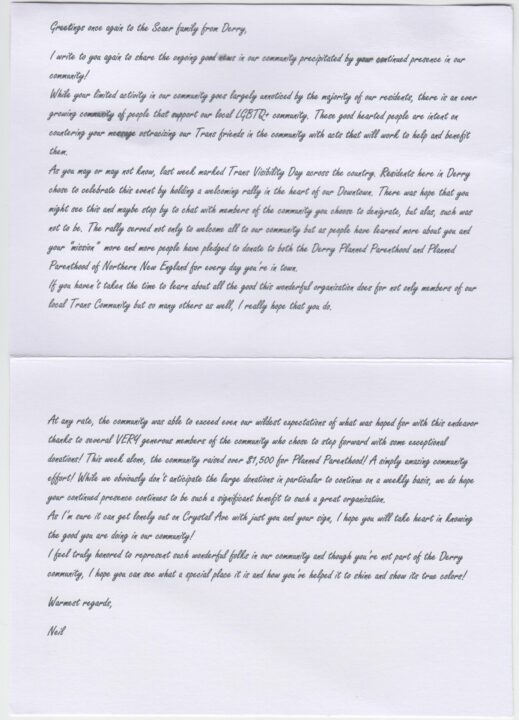 Greetings once again to the Scaer family from Derry,
I write to you again to share the ongoing good news in our community precipitated by your continued presence in our
community!
While your limited activity in our community goes largely unnoticed by the majority of our residents, there is an ever
growing community of people that support our local LGBTQ+ community. These good hearted people are intent on
countering your message ostracizing our Trans friends in the community with acts that will work to help and benefit
them.
As you may or may not know, last week marked Trans Visibility Day across the country. Residents here in Derry
chose to celebrate this event by holding a welcoming rally in the heart of our Downtown. There was hope that you
might see this and maybe stop by to chat with members of the community you choose to denigrate, but alas, such was
not to be. The rally served not only to welcome all to our community but as people have learned more about you and
your "mission" more and more people have pledged to donate to both the Derry Planned Parenthood and Planned
Parenthood of Northern New England for every day you're in town.
If you haven't taken the time to learn about all the good this wonderful organization does for not only members of our
local Trans Community but so many others as well, I really hope that you do.
At any rate, the community was able to exceed even our wildest expectations of what was hoped for with this endeavor
thanks to several VERY generous members of the community who chose to step forward with some exceptional
donations! This week alone, the community raised over $1,500 for Planned Parenthood! A simply amazing community
effort! While we obviously don't anticipate the large donations in particular to continue on a weekly basis, we do hope
your continued presence continues to be such a significant benefit to such a great organization.
As I'm sure it can get lonely out on Crystal Ave with just you and your sign, I hope you will take heart in knowing
the good you are doing in our community!
I feel truly honored to represent such wonderful folks in our community and though you're not part of the Derry
community, I hope you can see what a special place it is and how you've helped it to shine and show its true colors!
Warmest regards,
Neil